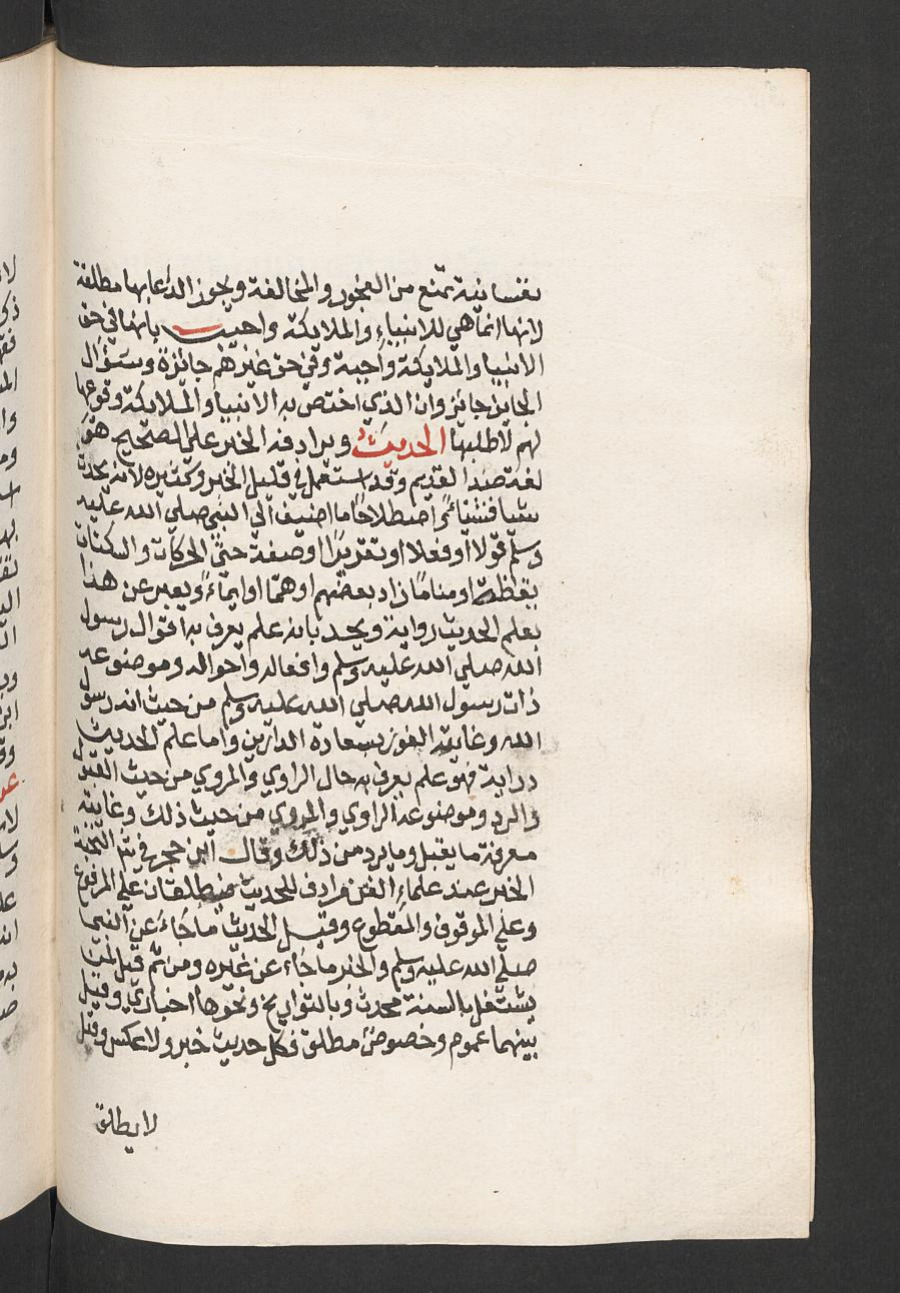 نفسانية تمنع من الفجور والمخالفة ويجوز الدعا بها مطلقة
لانها انما هي للانبياء والملايكة واجيب بانها في حق
الانبيا والملايكة واجبة وفي حق غيرهم جائزة وسؤال
الجايز جائز وان الذي اختص به الانبيا والملايكة وقوعها
لهم لا طلبها الحديث ويرادفه الخبر علي الصحيح هو
لغة ضد القديم وقد استعمل في قليل الخبر وكثيره لانه يحدث
شيا فشيائ واصطلاحا ما اضيف الي النبي صلي الله عليه
وسلم قولا او فعلا او تقريرا او صفة حتي الحركات والسكنات
يقظة او مناما زاد بعضهم او همّا او ايماء ويعبر عن هذا
بعلم الحديث رواية ويحد بانه علم يعرف به اقوال رسول
الله صلي الله عليه وسلم وافعاله واحواله وموضوعه
ذات رسول الله صلي الله عليه وسلم من حيث انه رسول
الله وغايته الفوز بسعادة الدارين واما علم الحديث
دراية فهو علم يعرف به حال الراوي والمروي من حيث القبول
والرد وموضوعه الراوي والمروي من حيث ذلك وغايته
معرفة ما يقبل وما يرد من ذلك وقال ابن حجر في شر النخبة
الخبر عند علماء الفن مرادف للحديث فيطلقان علي المرفوع
وعلي الموقوف والمقطوع وقيل الحديث ما جاء عن النبي
صلي الله عليه وسلم والخبر ما جاء عن غيره ومن ثم قيل لمن
يشتغل بالسنة محدث وبالتواريخ ونحوها اخباري وقيل
بينهما عموم وخصوص مطلق فكل حديث خبر ولا عكس وقيل
لا يطلق